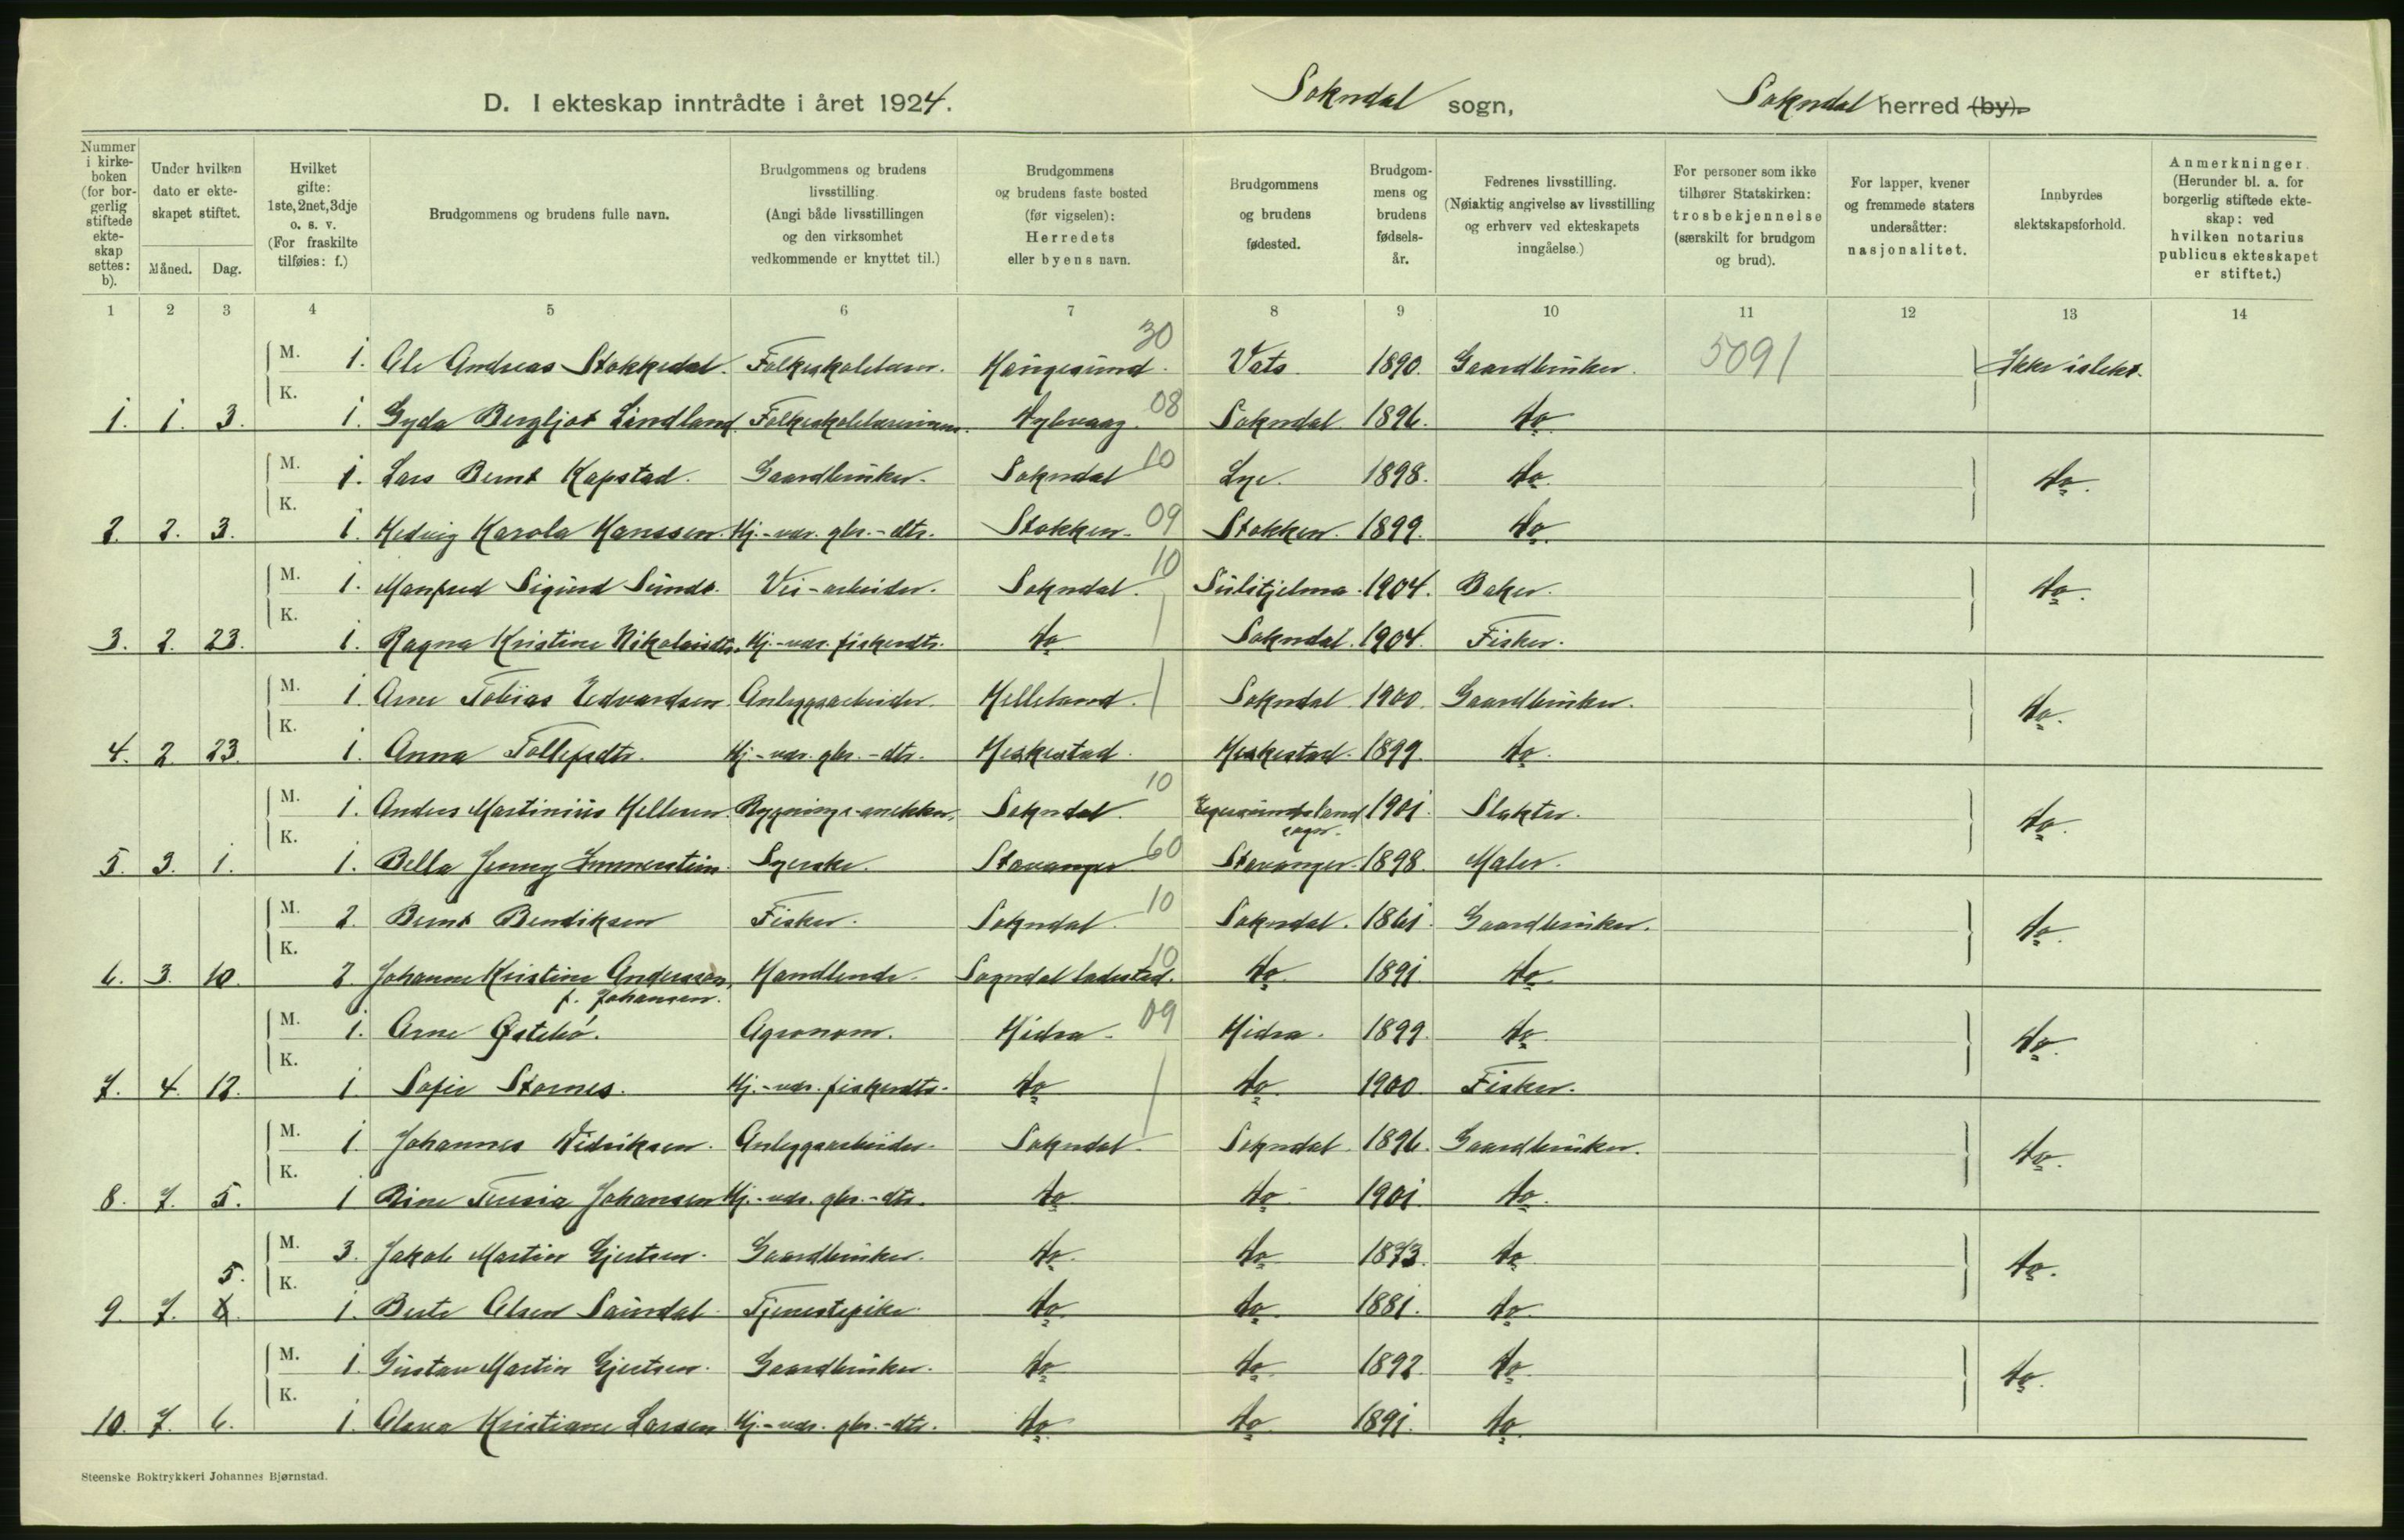 D. I ekteskap inntrådte i året 1924. Sokndal sogn, Sokndal herred (by).
Nummer i kirkeboken (for borgerlig stiftede ekteskap settes: b).
Under hvilken dato er ekteskapet stiftet.
Måned. Dag.
Hvilket gifte: 1ste, 2net, 3dje o. s. v. (For fraskilte tilføies: f.)
Brudgommens og brudens fulle navn.
Brudgommens og brudens livsstilling. (Angi både livsstillingen og den virksomhet vedkommende er knyttet til.)
Brudgommens og brudens faste bosted (før vigselen): Herredets eller byens navn.
Brudgommens og brudens fødested.
Brudgommens og brudens fødselsår.
Fedrenes livsstilling. (Nøiaktig angivelse av livsstilling og erhverv ved ekteskapets inngåelse.)
For personer som ikke tilhører Statskirken: trosbekjennelse (særskilt for brudgom og brud).
For lapper, kvener og fremmede staters undersåtter: nasjonalitet.
Innbyrdes slektskapsforhold.
Anmerkninger. (Herunder bl. a. for borgerlig stiftede ekteskap: ved hvilken notarius publicus ekteskapet er stiftet.)
1 2 3 4 5 6 7 8 9 10 11 12 13 14
M. 1. Ole Andreas Stokkedal. Folkeskolelærer. Haugesund. 30 Vats. 1890. Gaardbruker. 5091 Ikke i slekt.
1. 1. 3. K. 1. Gyda Bergljot Lindland. Folkeskolelærerinne. 08 Sokndal 1896. do
M. 1. Lars Bernt Kapstad. Gaardbruker. Sokndal 10 Lye. 1898. do. do.
2. 2. 3. K. 1. Hedvig Karola Hanssen. Hj.-vær. gbr.-dtr. Stokken. 09 Stokken. 1899. do.
M. 1. Manfred Sigurd Sunde. Vei-arbeider. Sokndal. 10 Sulitjelma. 1904. Baker. do.
3. 2. 23. K. 1. Ragna Kristine Nikolaisdtr. Hj.-vær. fiskerdtr. do Sokndal. 1904. Fisker.
M. 1. Arne Tobias Edvardsen. Anleggsarbeider. Helleland. Sokndal. 1900. Gaardbruker. do.
4. 2. 23. K. 1. Anna Tollefsdtr. Hj.-vær. gbr.-dtr. Heskestad. Heskestad. 1899. do.
M. 1. Anders Martinius Hellesen. Bygnings-snekker. Sokndal. 10 Egersunds land sogn. 1901. Slakter. do.
5. 3. 1. K. 1. Bella Jenny Immerstein. Syerske. Stavanger 60 Stavanger. 1898. Maler.
M. 2. Bernt Bendiksen Fisker. Sokndal. 10 Sokndal. 1861. Gaardbruker. do.
6. 3. 10. K. 2. Johanne Kristine Anderssen, f. Johansen. Handlende. Sogndal ladested. 10 do. 1891 do.
M. 1. Arne Østebø. Agronom. Hidra. 09 Hidra. 1899. do. do.
7. 4. 12. K. 1. Sofie Stornes. Hj.-vær. fiskerdtr. do do. 1900. Fisker.
M. 1. Johannes Didriksen. Anleggsarbeider. Sokndal. Sokndal. 1896. Gaardbruker. do.
8. 7. 5. K. 1 Rine Teresia Johansen Hj.-vær. gbr.-dtr. do do 1901. do.
M. 3. Jakob Martin Gjertsen. Gaardbruker. do. do. 1873. do do.
9. 7. 5. K. 1. Berte Olsen Saurdal. Tjenestepike. do. do. 1881. do.
M. 1. Gustav Martin Gjertsen. Gaardbruker. do do. 1892. do. do.
10. 7. 6. K. 1. Olava Kristiane Larsen. Hj.-vær. gbr.-dtr. do. do. 1891. do.
Steenske Boktrykkeri Johannes Bjørnstad.